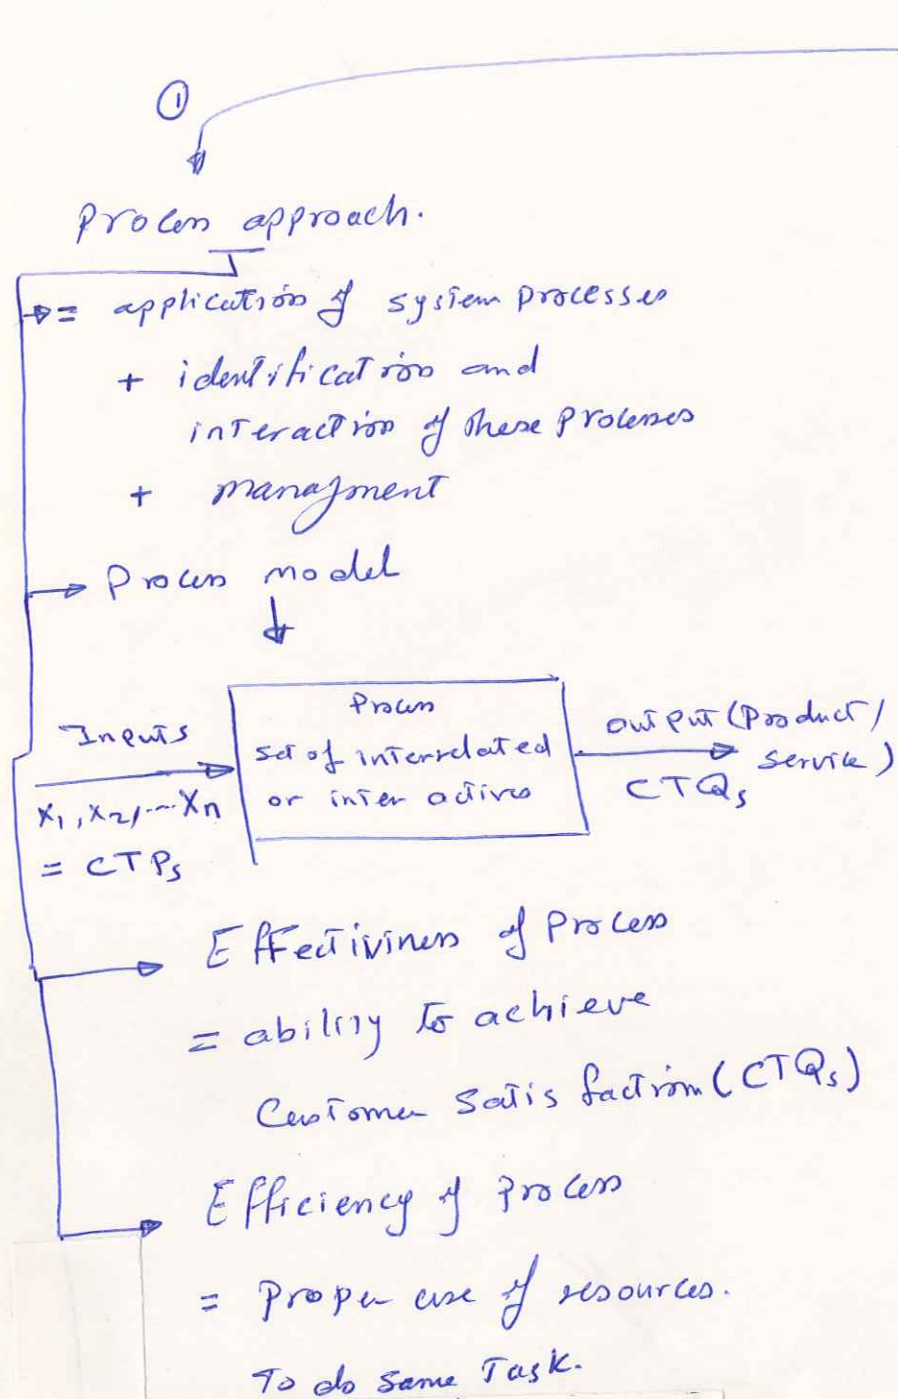 ①
Process approach.
= application of system processes
+ identification and
interaction of these processes
+ managment
Process model
Inputs
X1, X2, ... Xn
= CTPs
Process
set of interrelated
or inter actives
output (Product/
service)
CTQs
Effectiviness of Process
= ability to achieve
Customer Satisfaction (CTQs)
Efficiency of process
= Proper use of resources.
To do same Task.